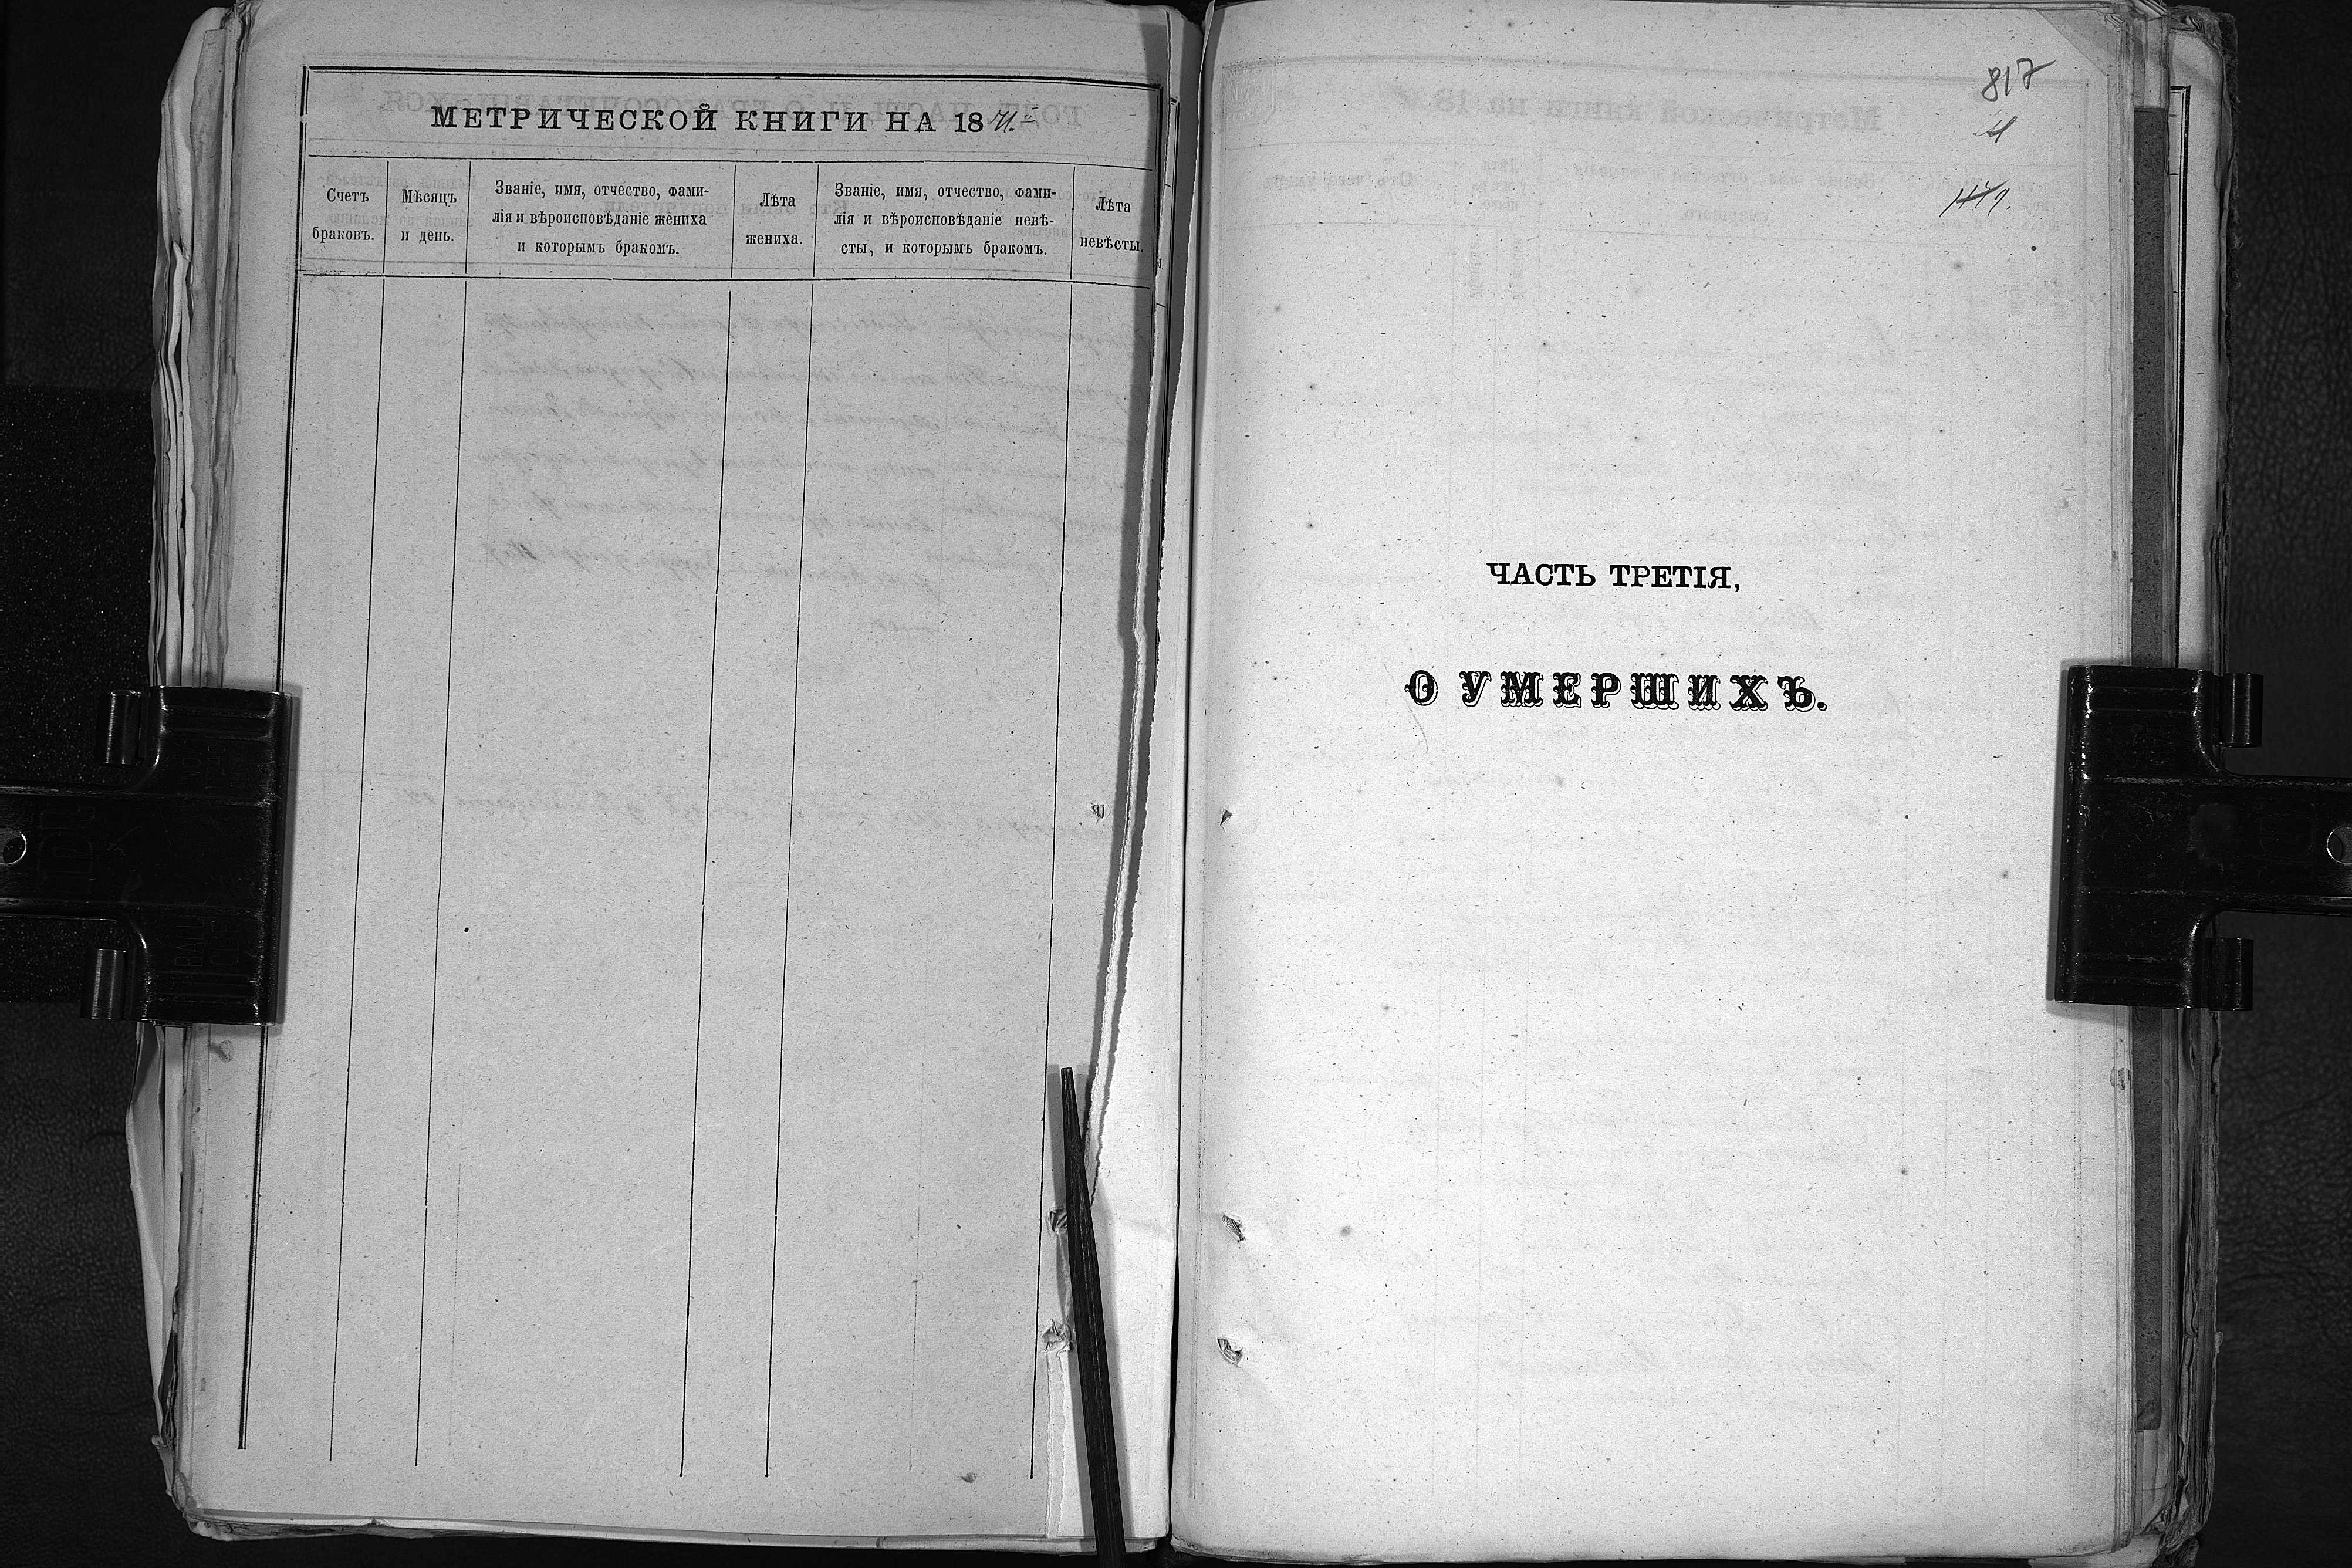 МЕТРИЧЕСКОЙ КНИГИ НА 18
Счетъ
браковъ.
Мѣсяцъ
и день.
Званіе, имя, отчество, фами-
лія и вѣроисповѣданіе жениха
и которымъ бракомъ.
Лѣта
жениха.
Званіе, имя, отчество, фами-
лія и вѣроисповѣданіе невѣ-
сты, и которымъ бракомъ.
Лѣта
невѣсты.
817
ЧАСТЬ ТРЕТІЯ,
О УМЕРШИХЪ.